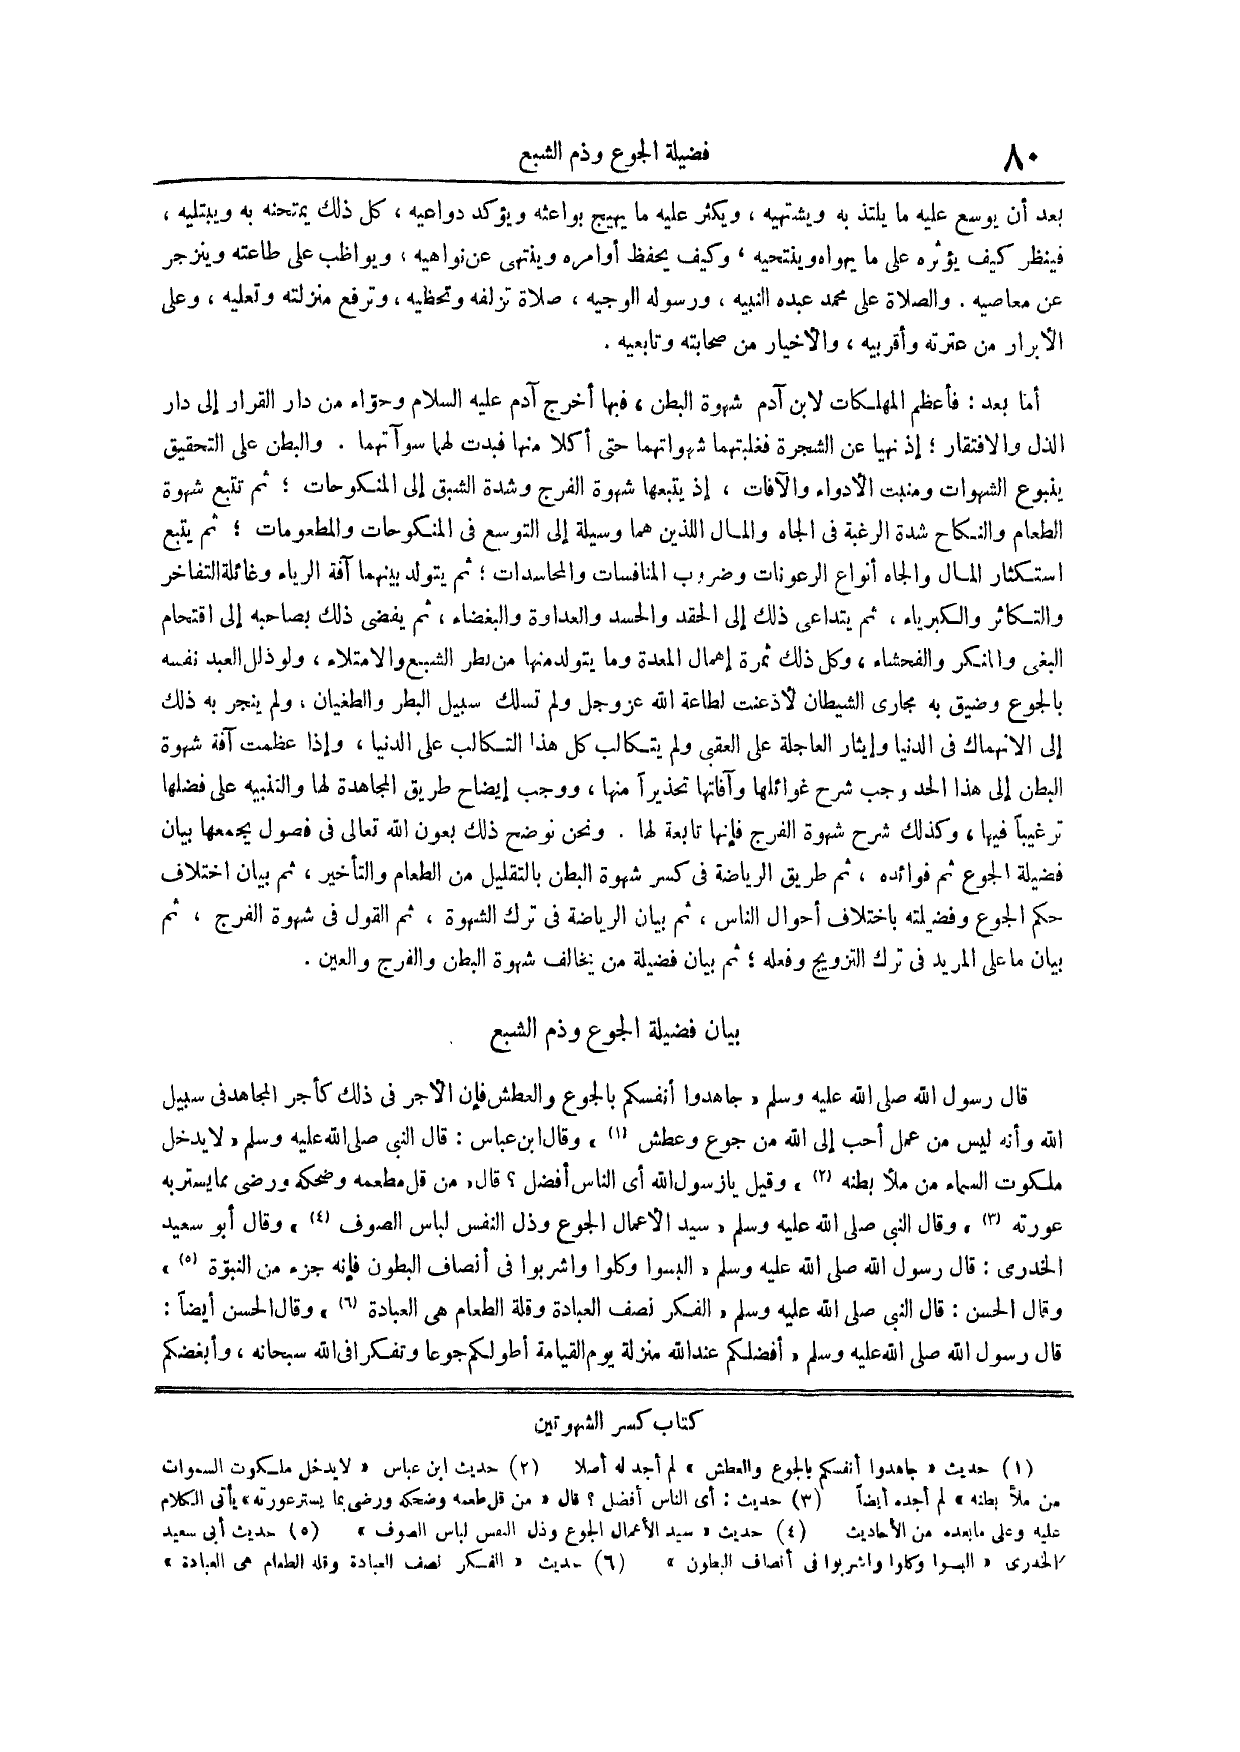 ٨٠
فضيلة الجوع وذم الشبع
بعد أن يوسع عليه ما يلتذ به ويشتهيه ، ويكثر عليه ما يهيج بواعثه ويؤكد دواعيه ، كل ذلك يمتحنه به ويبتليه ،
فينظر كيف يؤثره على ما يهواه وينتحيه ، وكيف يحفظ أوامره وينتهى عن نواهيه ، ويواظب على طاعته وينزجر
عن معاصيه . والصلاة على محمد عبده النبيه ، ورسوله الوجيه ، صلاة تزلفه وتحظيه ، وترفع منزلته وتعليه ، وعلى
الأبرار من عترته وأقربيه ، والأخيار من صحابته وتابعيه .
أما بعد : فأعظم المهلكات لابن آدم شهوة البطن ، فبها أخرج آدم عليه السلام وحوّاء من دار القرار إلى دار
الذل والافتقار ؛ إذ نهيا عن الشجرة فغلبتهما شهواتهما حتى أكلا منها فبدت لهما سوآتهما . والبطن على التحقيق
ينبوع الشهوات ومنبت الأدواء والآفات ، إذ يتبعها شهوة الفرج وشدة الشبق إلى المنكوحات ؛ ثم تتبع شهوة
الطعام والنكاح شدة الرغبة فى الجاه والمال اللذين هما وسيلة إلى التوسع فى المنكوحات والمطعومات ؛ ثم يتبع
استكثار المال والجاه أنواع الرعونات وضروب المنافسات والمحاسدات ؛ ثم يتولد بينهما آفة الرياء وغائلة التفاخر
والتكاثر والكبرياء ، ثم يتداعى ذلك إلى الحقد والحسد والعداوة والبغضاء ، ثم يفضى ذلك بصاحبه إلى اقتحام
البغى والمنكر والفحشاء ، وكل ذلك ثمرة إهمال المعدة وما يتولد منها من بطر الشبع والامتلاء ، ولو ذلل العبد نفسه
بالجوع وضيق به مجارى الشيطان لأذعنت لطاعة الله عزوجل ولم تسلك سبيل البطر والطغيان ، ولم ينجر به ذلك
إلى الانهماك فى الدنيا وإيثار العاجلة على العقبى ولم يتكالب كل هذا التكالب على الدنيا ، وإذا عظمت آفة شهوة
البطن إلى هذا الحد وجب شرح غوائلها وآفاتها تحذيراً منها ، ووجب إيضاح طريق المجاهدة لها والتنبيه على فضلها
ترغيباً فيها ، وكذلك شرح شهوة الفرج فإنها تابعة لها . ونحن نوضح ذلك بعون الله تعالى فى فصول يجمعها بيان
فضيلة الجوع ثم فوائده ، ثم طريق الرياضة فى كسر شهوة البطن بالتقليل من الطعام والتأخير ، ثم بيان اختلاف
حكم الجوع وفضيلته باختلاف أحوال الناس ، ثم بيان الرياضة فى ترك الشهوة ، ثم القول فى شهوة الفرج ، ثم
بيان ما على المريد فى ترك التزويج وفعله ؛ ثم بيان فضيلة من يخالف شهوة البطن والفرج والعين .
بيان فضيلة الجوع وذم الشبع
قال رسول الله صلى الله عليه وسلم « جاهدوا أنفسكم بالجوع والعطش فإن الأجر فى ذلك كأجر المجاهد فى سبيل
الله وأنه ليس من عمل أحب إلى الله من جوع وعطش (١) » وقال ابن عباس : قال النبى صلى الله عليه وسلم « لا يدخل
ملكوت السماء من ملأ بطنه (٢) » وقيل يا رسول الله أى الناس أفضل ؟ قال « من قل مطعمه وضحكه ورضى بما يستر به
عورته (٣) » وقال النبى صلى الله عليه وسلم « سيد الأعمال الجوع وذل النفس لباس الصوف (٤) » وقال أبو سعيد
الخدرى : قال رسول الله صلى الله عليه وسلم « البسوا وكلوا واشربوا فى أنصاف البطون فإنه جزء من النبوّة (٥) »
وقال الحسن : قال النبى صلى الله عليه وسلم « الفكر نصف العبادة وقلة الطعام هى العبادة (٦) » وقال الحسن أيضاً :
قال رسول الله صلى الله عليه وسلم « أفضلكم عند الله منزلة يوم القيامة أطولكم جوعا وتفكرا فى الله سبحانه ، وأبغضكم
كتاب كسر الشهوتين
(١) حديث « جاهدوا أنفسكم بالجوع والعطش » لم أجد له أصلا (٢) حديث ابن عباس « لا يدخل ملكوت السموات
من ملأ بطنه » لم أجده أيضاً (٣) حديث : أى الناس أفضل ؟ قال « من قل طعمه وضحكه ورضى بما يستر عورته » يأتى الكلام
عليه وعلى ما بعده من الأحاديث (٤) حديث « سيد الأعمال الجوع وذل النفس لباس الصوف » (٥) حديث أبى سعيد
الخدرى « البسوا وكلوا واشربوا فى أنصاف البطون » (٦) حديث « الفكر نصف العبادة وقلة الطعام هى العبادة »